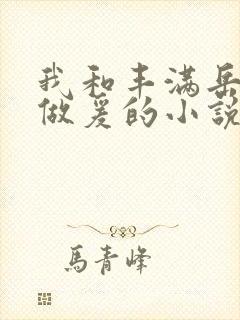 我和丰满岳
做爰的小説
馬青峰